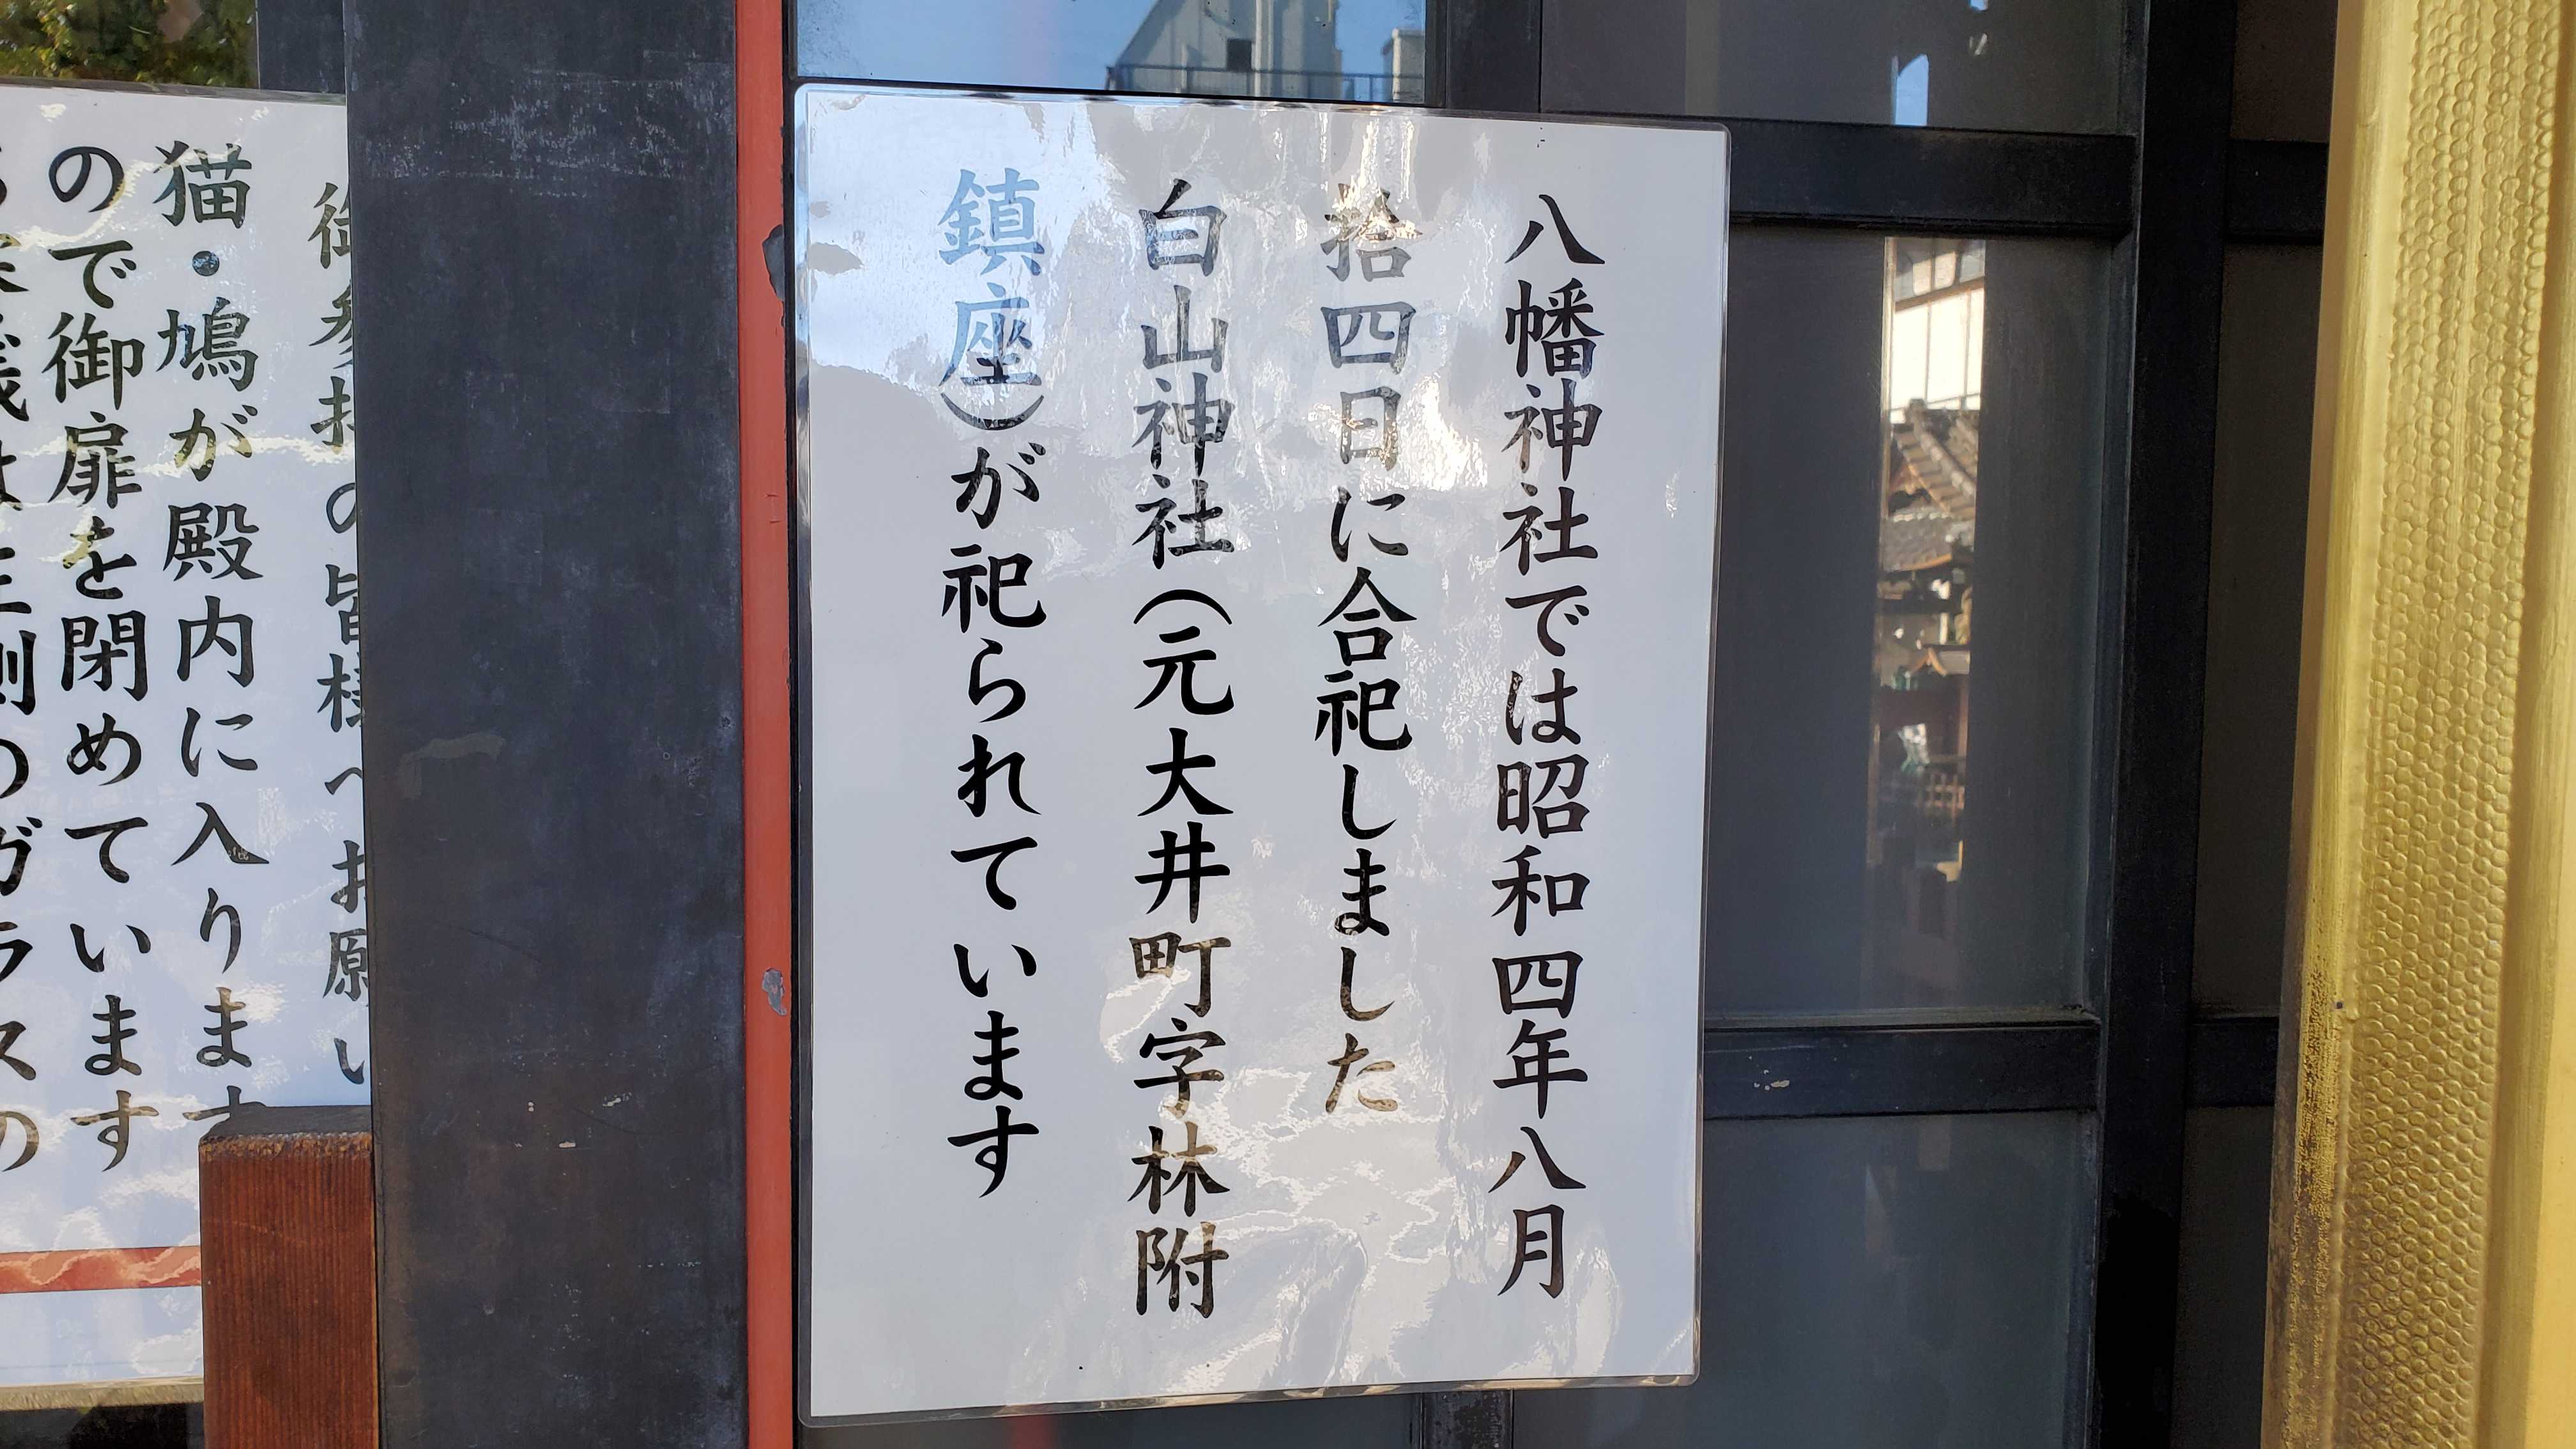 八幡神社では昭和四年八月
拾四日に合祀しました
白山神社(元大井町字林附
鎮座)が祀られています
御参拝の皆様へお願い
猫・鳩が殿内に入ります
ので御扉を閉めています
側のガラスの